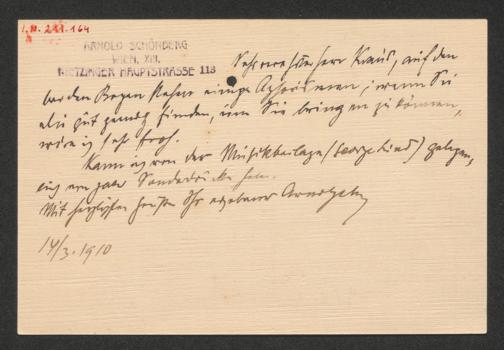 I.N. 211.164
ARNOLD SCHÖNBERG
WIEN, XIII.
HIETZINGER HAUPTSTRASSE 113
Sehr verehrter Herr Kraus, auf den
beiden Bogen stehen einige Aphorismen; wenn Sie
sie gut genug finden, um Sie bringen zu können,
wäre ich sehr froh.
Kann ich von der Musikbeilage (Georgelied)
ein paar Sonderdrucke
Mit herzlichen Grüßen Ihr ergebener Arnold
14/3. 1910